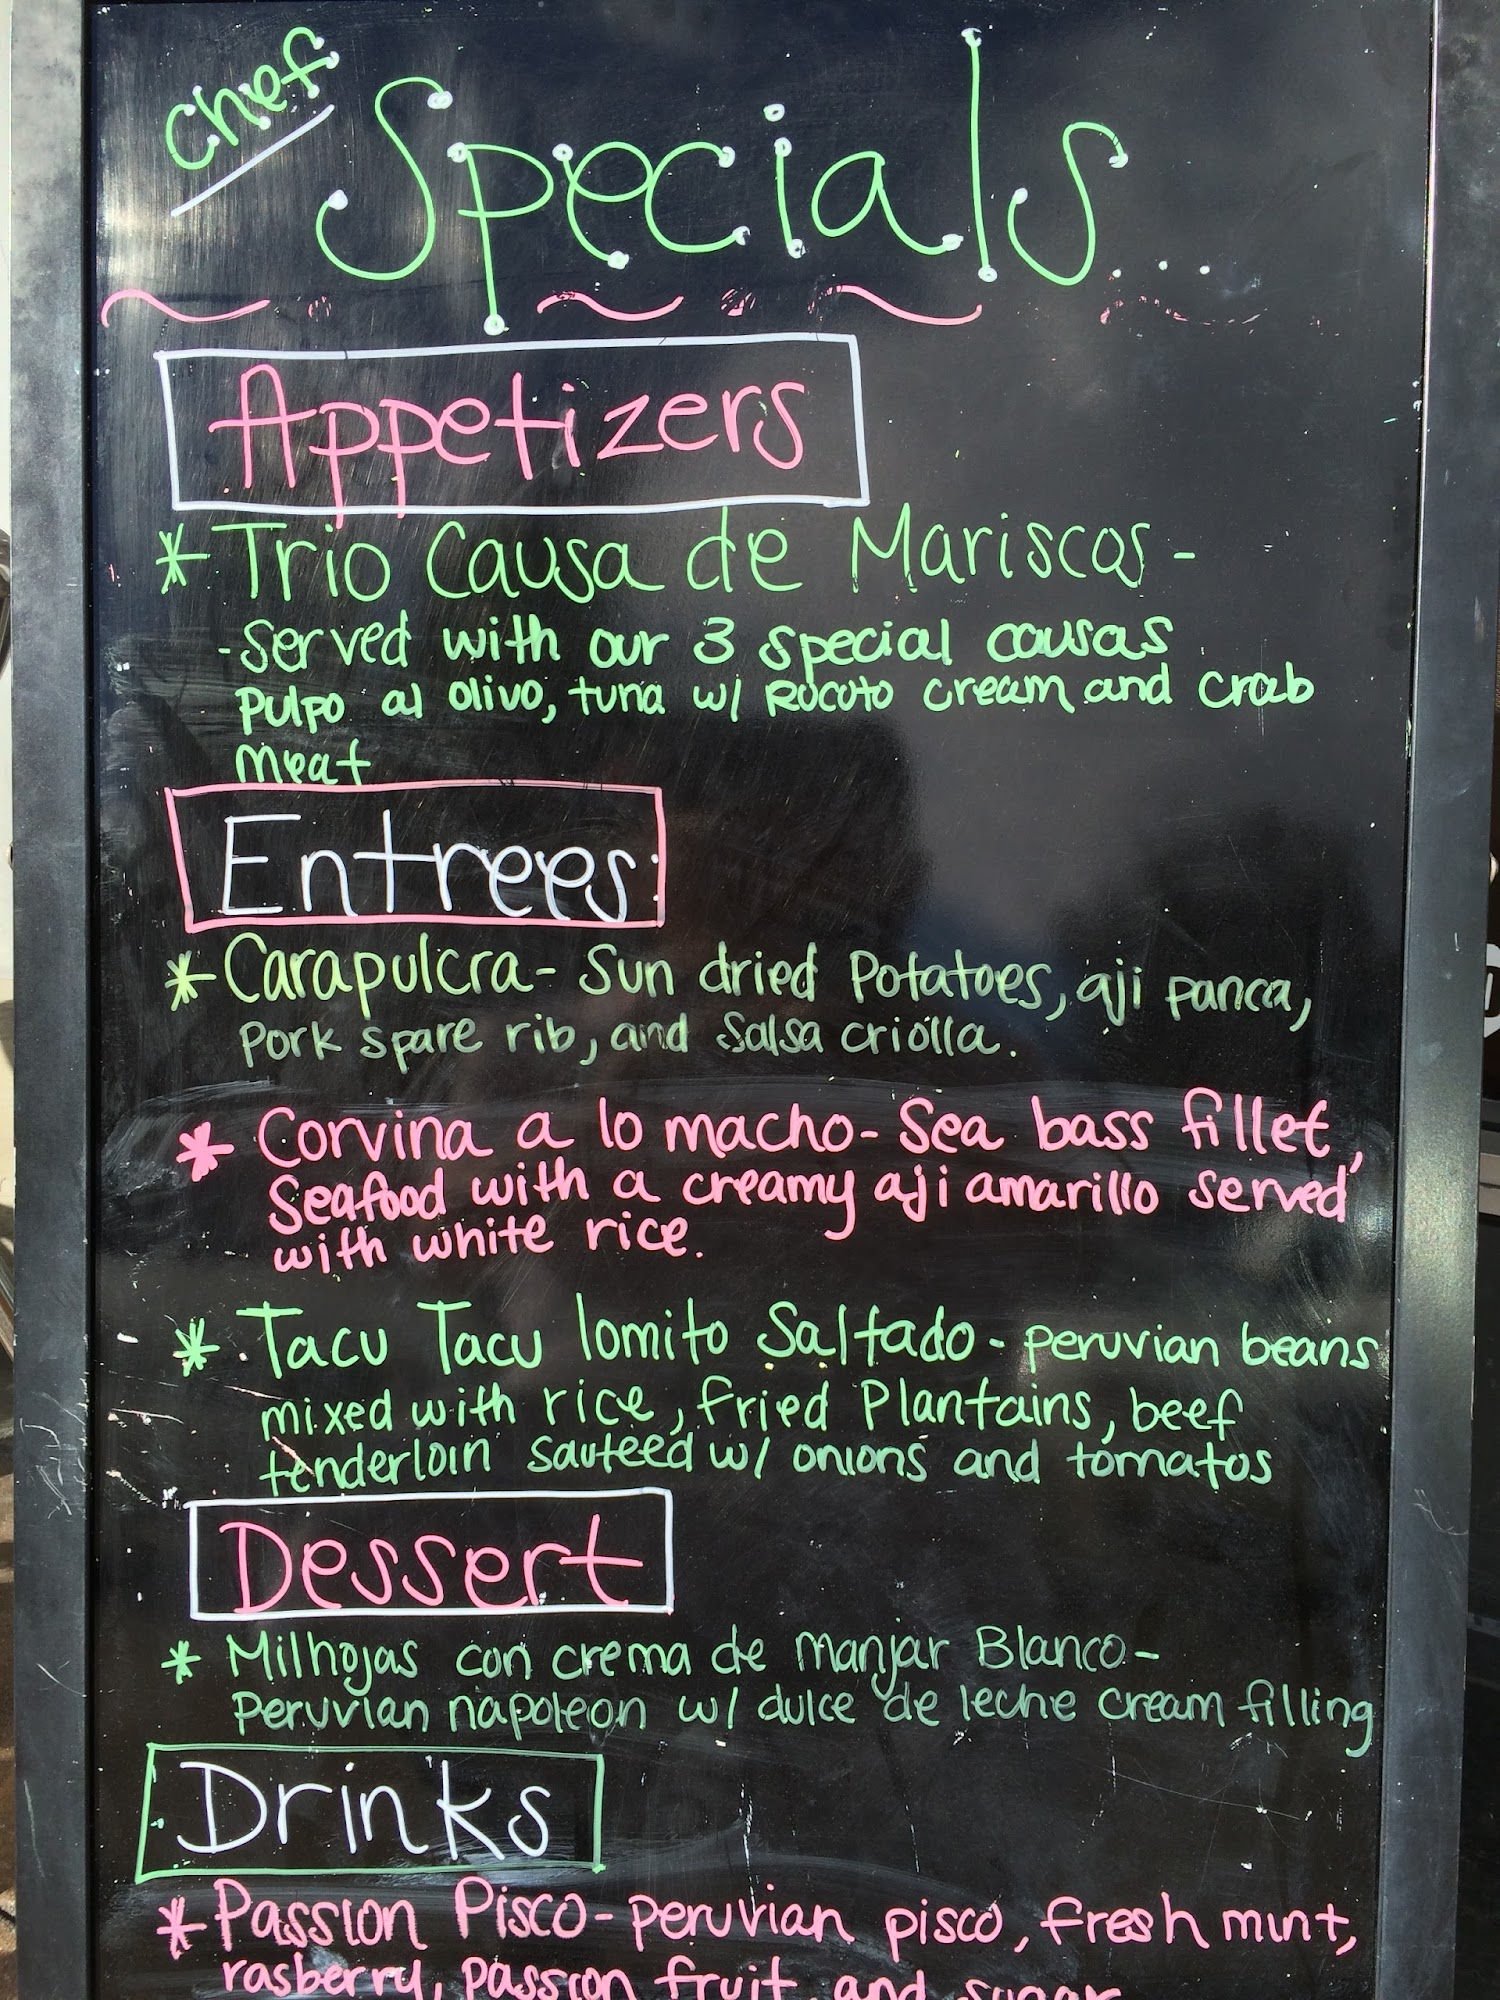 Chef
Specials...
Appetizers
* Trio Causa de Mariscos -
- Served with our 3 special causas
Pulpo al olivo, tuna w/ Rocoto cream and crab
meat
Entrees:
* Carapulcra - Sun dried Potatoes, aji panca,
Pork spare rib, and Salsa criolla.
* Corvina a lo macho - Sea bass fillet,
Seafood with a creamy aji amarillo served
with white rice.
* Tacu Tacu lomito Saltado - peruvian beans
mixed with rice, fried Plantains, beef
tenderloin sauteed w/ onions and tomatos
Dessert
* Milhojas con crema de manjar Blanco -
Peruvian napoleon w/ dulce de leche cream filling
Drinks
* Passion Pisco - peruvian pisco, fresh mint,
rasberry, passion fruit, and sugar